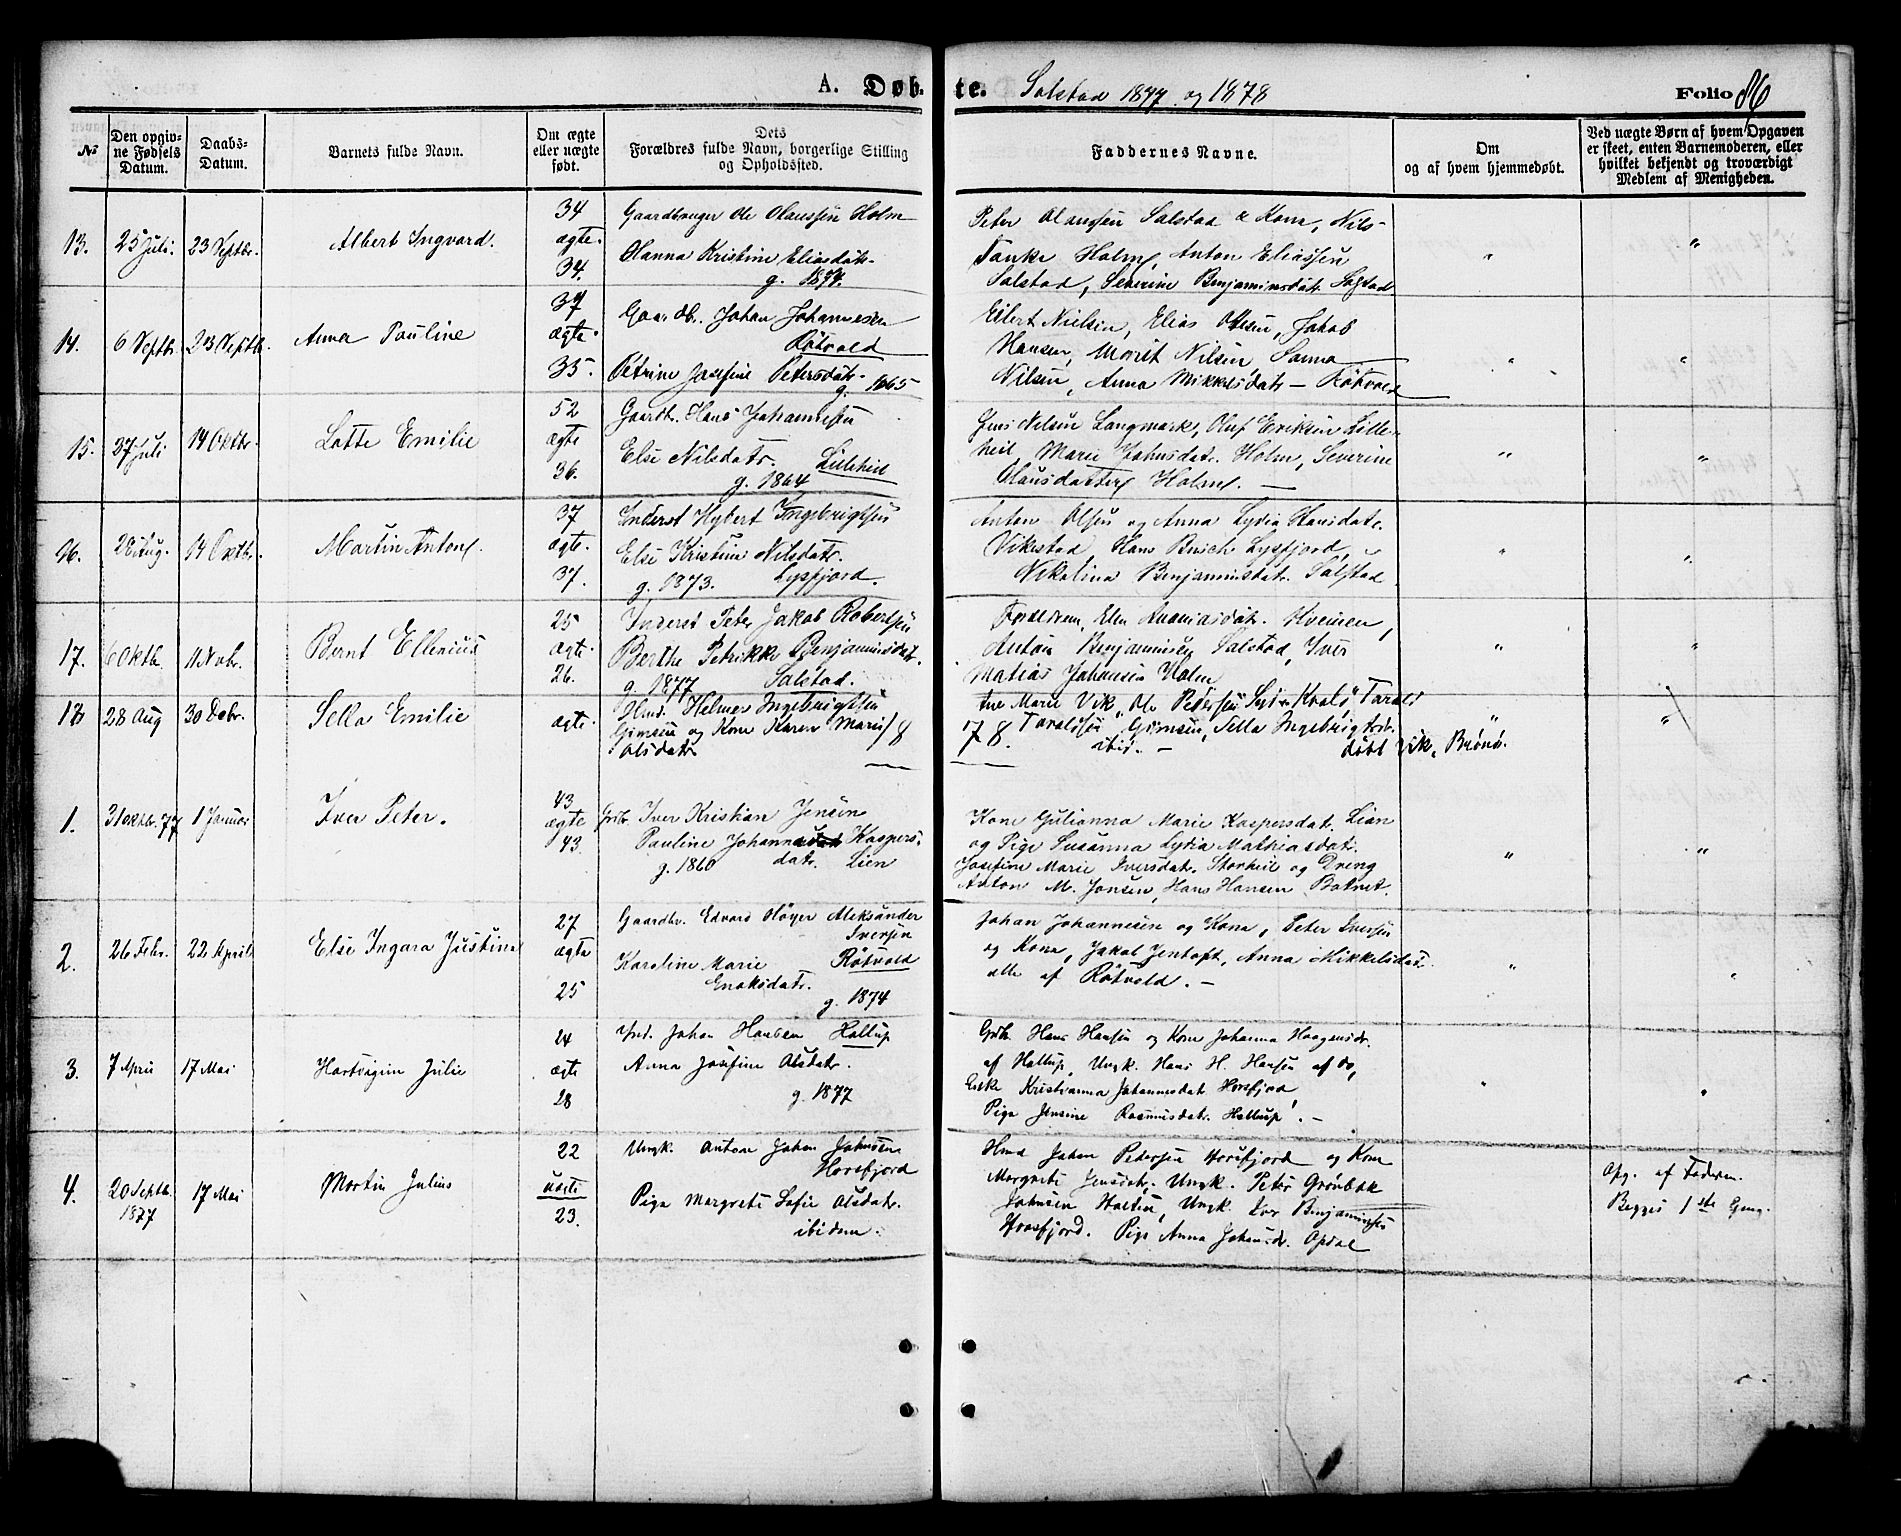 A. Døbte. Solstad 1877 og 1878 Folio 86
№
Den opgivne Fødsels Datum.
Daabs-Datum.
Barnets fulde Navn.
Om ægte eller uægte født.
Dets Forældres fulde Navn, borgerlige Stilling og Opholdssted.
Faddernes Navne.
Om og af hvem hjemmedøbt.
Ved uægte Børn af hvem Opgaven er skeet, enten Barnemoderen, eller hvilket bekjendt og troværdigt Medlem af Menigheden.
13. 25 Juli. 23 Septbr. Albert Ingvard.
34 ægte. 34.
Gaardbruger Ole Olaussen Holm
Olanna Kristine Eliasdatr.
g. 1874.
Peter Olaussen Salstad & Kone, Nils
Tanke Holm, Anton Eliassen
Salstad, Severine Benjaminsdatr. Salstad
14. 6 Septbr. 23 Septbr. Anna Pauline
37 ægte. 35.
Gaardbr. Johan Johannesen
Røtvold
Petrine Josefine Petersdatr.
g. 1865
Eilert Nielsen, Elias Olsen, Jakob
Hansen, Morist Nilsen, Sanna
Nilsen, Anna Mikkelsdatr. — Røtvold
15. 27 Juli 14 Oktbr. Lotte Emilie
52 ægte 36.
Gaardb. Hans Johannesen
Else Nilsdatr. Lilleheil
g. 1864
Jens Nilsen Langmark, Oluf Eriksen Lille-
heil, Marie Johnsdatr. Holm, Severine
Olausdatter Holm. —
16. 28 Aug. 14 Oktbr. Martin Anton.
37 ægte. 37.
Inderst Hybert Ingebrigtsen
Else Kristine Nilsdatr.
g. 1873. Lysfjord.
Anton Olsen og Anna Lydia Hansdatr.
Vikestad, Hans Busch Lysfjord,
Nikolina Benjaminsdatr. Salstad
17. 6 Oktb. 11 Nvbr. Bernt Ellerius
25 ægte. 26.
Inderst Peter Jakob Robertsen
Berthe Petrikke Benjaminsdatr.
g. 1877 Salstad.
Forældrene, Elen Ananiasdatr. Kveinen,
Anton Benjaminsen Salstad, Iver
Matias Johansen Holm
18 28 Aug 30 Debr. Sella Emilie
ægte.
Hmd. Helmer Ingebrigtsen
Gimsen og Kone Karen Marie
Olsdatr.
Ane Marie Vik, Ole Pedersen Kvalø, Tarald
Taraldsen Gimsen, Sella Ingebrigtsdtr.
ibid. — døbt Vik, Brønø.
1878.
1. 31 Oktbr. 77 1 Januar Iver Peter.
43 ægte 43
Grdbr. Iver Kristian Jensen
Pauline Johanna Kaspers-
g. 1860 datr. Lien
Kone Gulianna Marie Kaspersdatr. Lian
og Pige Susanna Lydia Mathiasdatr.
Josefine Marie Iversdatr. Storheil og Dreng
Anton M. Jonsen, Hans Hansen
2. 26 Febr. 22 April Else Ingara Justina
27 ægte 25
Gaardbr. Edvard Høyer Aleksander
Iversen
Karoline Marie Røtvold
Enoksdatr.
g. 1874
Johan Johannesen og Kone, Peter Iversen
og Kone, Jakob Jentoft, Anna Mikkelsdatr.
alle af Røtvold. —
3. 7 April 17 Mai Hartvigine Julie
24 ægte 28
Johan Hansen Hallup
Anna Josefine Olsdatr.
g. 1877
Grdb. Hans Hansen og Kone Johanna Haagensdr.
af Hallup, Ungk. Hans H. Hansen af Do,
Enke Kristianna Johannesdatr Horsfjord
Pige Jensine Rasmusdatr. Hallup. —
4. 20 Septb. 1877 17 Mai Martin Julius
22 uægte 23.
Ungk. Anton Johan Johnsen
Horsfjord
Pige Margrete Sofie Olsdatr.
ibidem.
Hmd Johan Pedersen Horsfjord og Kone
Margrete Jensdatr. Ungk. Peter Grønbek
Johnsen, Ungk. Iver Benjaminsen
Horsfjord. Pige Anna Johansdr. Opdal
Opg. af Faderen.
Begges 1ste Gang.